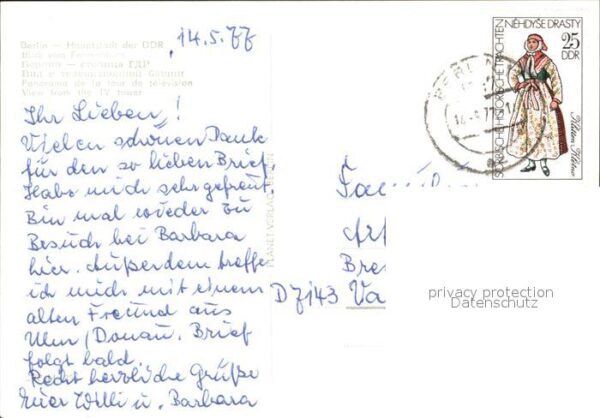 14.5.77
Berlin — Hauptstadt der DDR
Blick vom Fernsehturm
Берлин — столица ГДР
Вид с телевизионной башни
Panorama de la tour de télévision
View from the TV tower
Ihr Lieben!
Vielen schönen Dank
für den so lieben Brief.
Habe mich sehr gefreut.
Bin mal wieder zu
Besuch bei Barbara
hier. Außerdem treffe
ich mich mit einem
alten Freund aus
Ulm/Donau. Brief
folgt bald.
Recht herzliche Grüße
Euer Willi u. Barbara
PLANET VERLAG BERLIN
NĚHDYŠE DRASTY
25
DDR
SORBISCHE HISTORISCHE TRACHTEN
BERLIN
Bre
D 7143 Va
privacy protection
Datenschutz